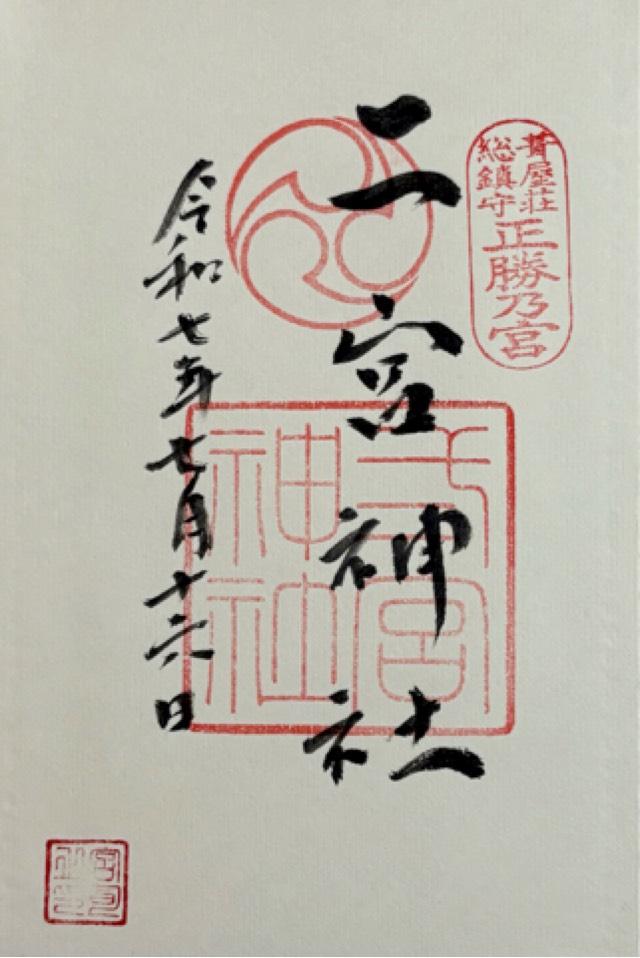 葺屋荘
総鎮守
正勝乃宮
二宮神社
弍宮
神社
令和七年七月十六日